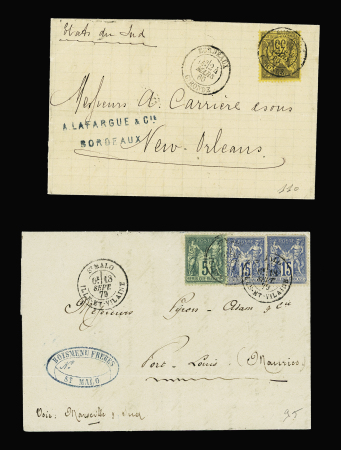 Etats du Sud
BORDEAUX
35
Messieurs A. Carrière & sons
A LAFARGUE & Cie
BORDEAUX
New-Orleans
ST MALO
SEPT
79
ILLE-ET-VILAINE
5
15
15
ILLE-ET-VILAINE
Messieurs Pyron-Adam & Cie
Port-Louis (Maurice)
BOISMENU FRERES
ST MALO
Voie: Marseille &